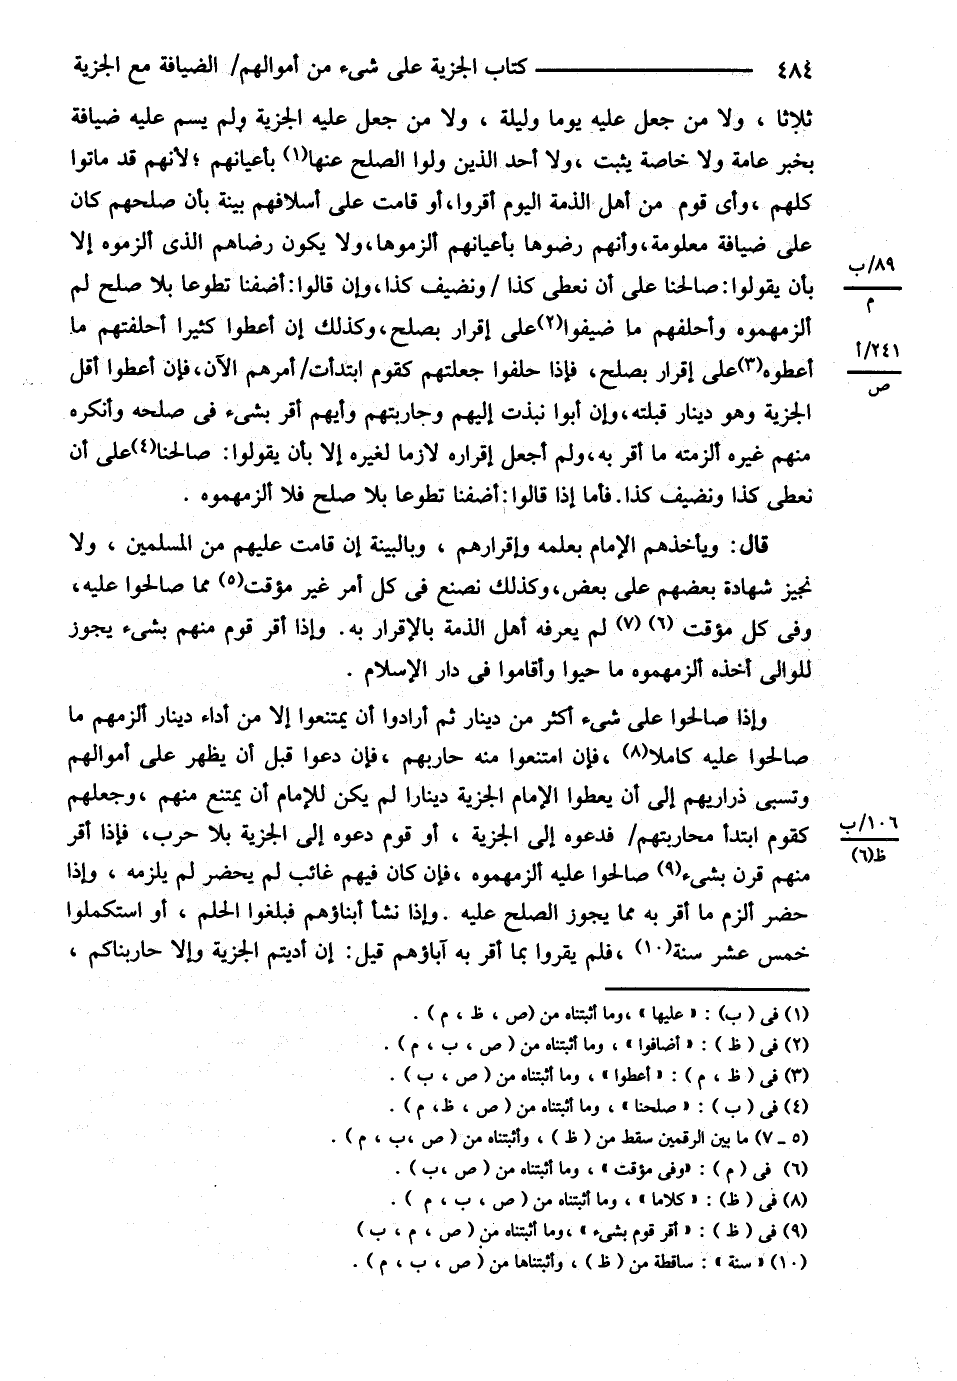 ٤٨٤ ــــــــــــــــــــ كتاب الجزية على شىء من أموالهم/ الضيافة مع الجزية
ثلاثا ، ولا من جعل عليه يوما وليلة ، ولا من جعل عليه الجزية ولم يسم عليه ضيافة
بخبر عامة ولا خاصة يثبت ،ولا أحد الذين ولوا الصلح عنها(١) بأعيانهم ؛لأنهم قد ماتوا
كلهم ،وأى قوم من أهل الذمة اليوم أقروا،أو قامت على أسلافهم بينة بأن صلحهم كان
على ضيافة معلومة،وأنهم رضوها بأعيانهم ألزموها،ولا يكون رضاهم الذى ألزموه إلا
٨٩/ب
م
بأن يقولوا: صالحنا على أن نعطى كذا /ونضيف كذا،وإن قالوا:أضفنا تطوعا بلا صلح لم
ألزمهموه وأحلفهم ما ضيفوا(٢)على إقرار بصلح،وكذلك إن أعطوا كثيرا أحلفتهم ما
٢٤١/أ
ص
أعطوه(٣)على إقرار بصلح، فإذا حلفوا جعلتهم كقوم ابتدأت/أمرهم الآن،فإن أعطوا أقل
الجزية وهو دينار قبلته،وإن أبوا نبذت إليهم وحاربتهم وأيهم أقر بشىء فى صلحه وأنكره
منهم غيره ألزمته ما أقر به،ولم أجعل إقراره لازما لغيره إلا بأن يقولوا: صالحنا(٤)على أن
نعطى كذا ونضيف كذا.فأما إذا قالوا:أضفنا تطوعا بلا صلح فلا ألزمهموه .
قال: ويأخذهم الإمام بعلمه وإقرارهم ، وبالبينة إن قامت عليهم من المسلمين ، ولا
نجيز شهادة بعضهم على بعض،وكذلك نصنع فى كل أمر غير مؤقت(٥) مما صالحوا عليه،
وفى كل مؤقت (٦) (٧) لم يعرفه أهل الذمة بالإقرار به. وإذا أقر قوم منهم بشىء يجوز
للوالى أخذه ألزمهموه ما حيوا وأقاموا فى دار الإسلام .
وإذا صالحوا على شىء أكثر من دينار ثم أرادوا أن يمتنعوا إلا من أداء دينار ألزمهم ما
صالحوا عليه كاملا(٨) ،فإن امتنعوا منه حاربهم ،فإن دعوا قبل أن يظهر على أموالهم
وتسبى ذراريهم إلى أن يعطوا الإمام الجزية دينارا لم يكن للإمام أن يمتنع منهم ،وجعلهم
١٠٦/ب
ظ(٦)
كقوم ابتدأ محاربتهم/ فدعوه إلى الجزية ، أو قوم دعوه إلى الجزية بلا حرب، فإذا أقر
منهم قرن بشىء(٩) صالحوا عليه ألزمهموه ،فإن كان فيهم غائب لم يحضر لم يلزمه ، وإذا
حضر ألزم ما أقر به مما يجوز الصلح عليه .وإذا نشأ أبناؤهم فبلغوا الحلم ، أو استكملوا
خمس عشر سنة(١٠) ،فلم يقروا بما أقر به آباؤهم قيل: إن أديتم الجزية وإلا حاربناكم ،
(١) فى ( ب) : « عليها » ،وما أثبتناه من (ص ، ظ ، م ) .
(٢) فى ( ظ ) : « أضافوا » ، وما أثبتناه من ( ص ، ب ، م ) .
(٣) فى ( ظ ، م ) : « أعطوا » ، وما أثبتناه من ( ص ، ب ) .
(٤) فى ( ب ) : « صلحنا » ، وما أثبتناه من ( ص ، ظ، م ) .
(٥ ـ ٧) ما بين الرقمين سقط من ( ظ ) ، وأثبتناه من ( ص ،ب ، م ) .
(٦) فى ( م ) : «وفى مؤقت » ، وما أثبتناه من ( ص ،ب ) .
(٨) فى ( ظ) : « كلاما » ، وما أثبتناه من ( ص ، ب ، م ) .
(٩) فى ( ظ ) : « أقر قوم بشىء » ،وما أثبتناه من ( ص ، م ، ب )
(١٠) « سنة » : ساقطة من ( ظ ) ، وأثبتناها من ( ص ، ب ، م ) .